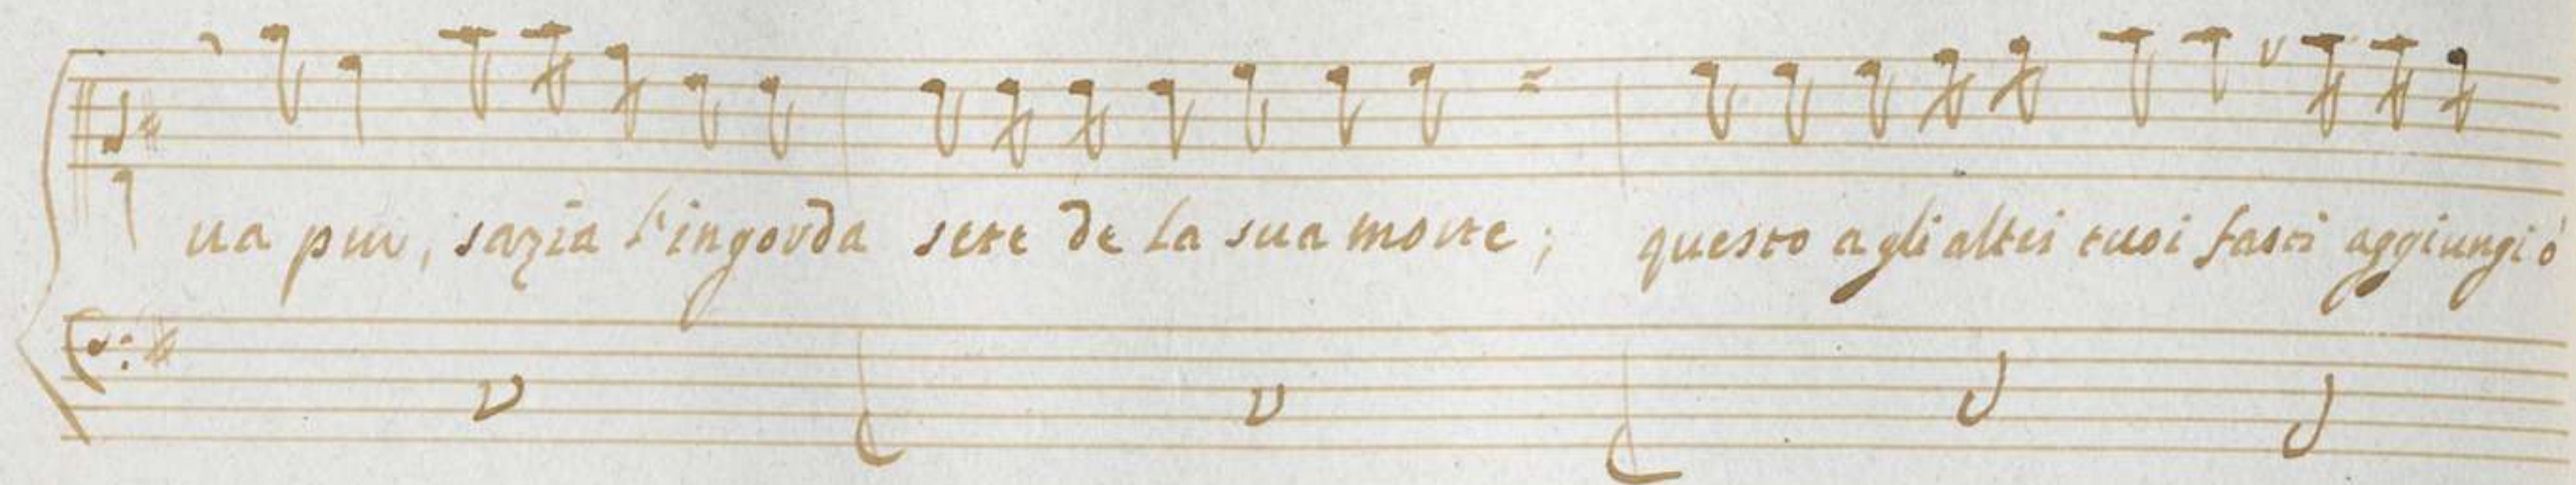 ua pur, sazia l'ingorda sete de la sua morte; questo agli altri tuoi fasti aggiungi ò